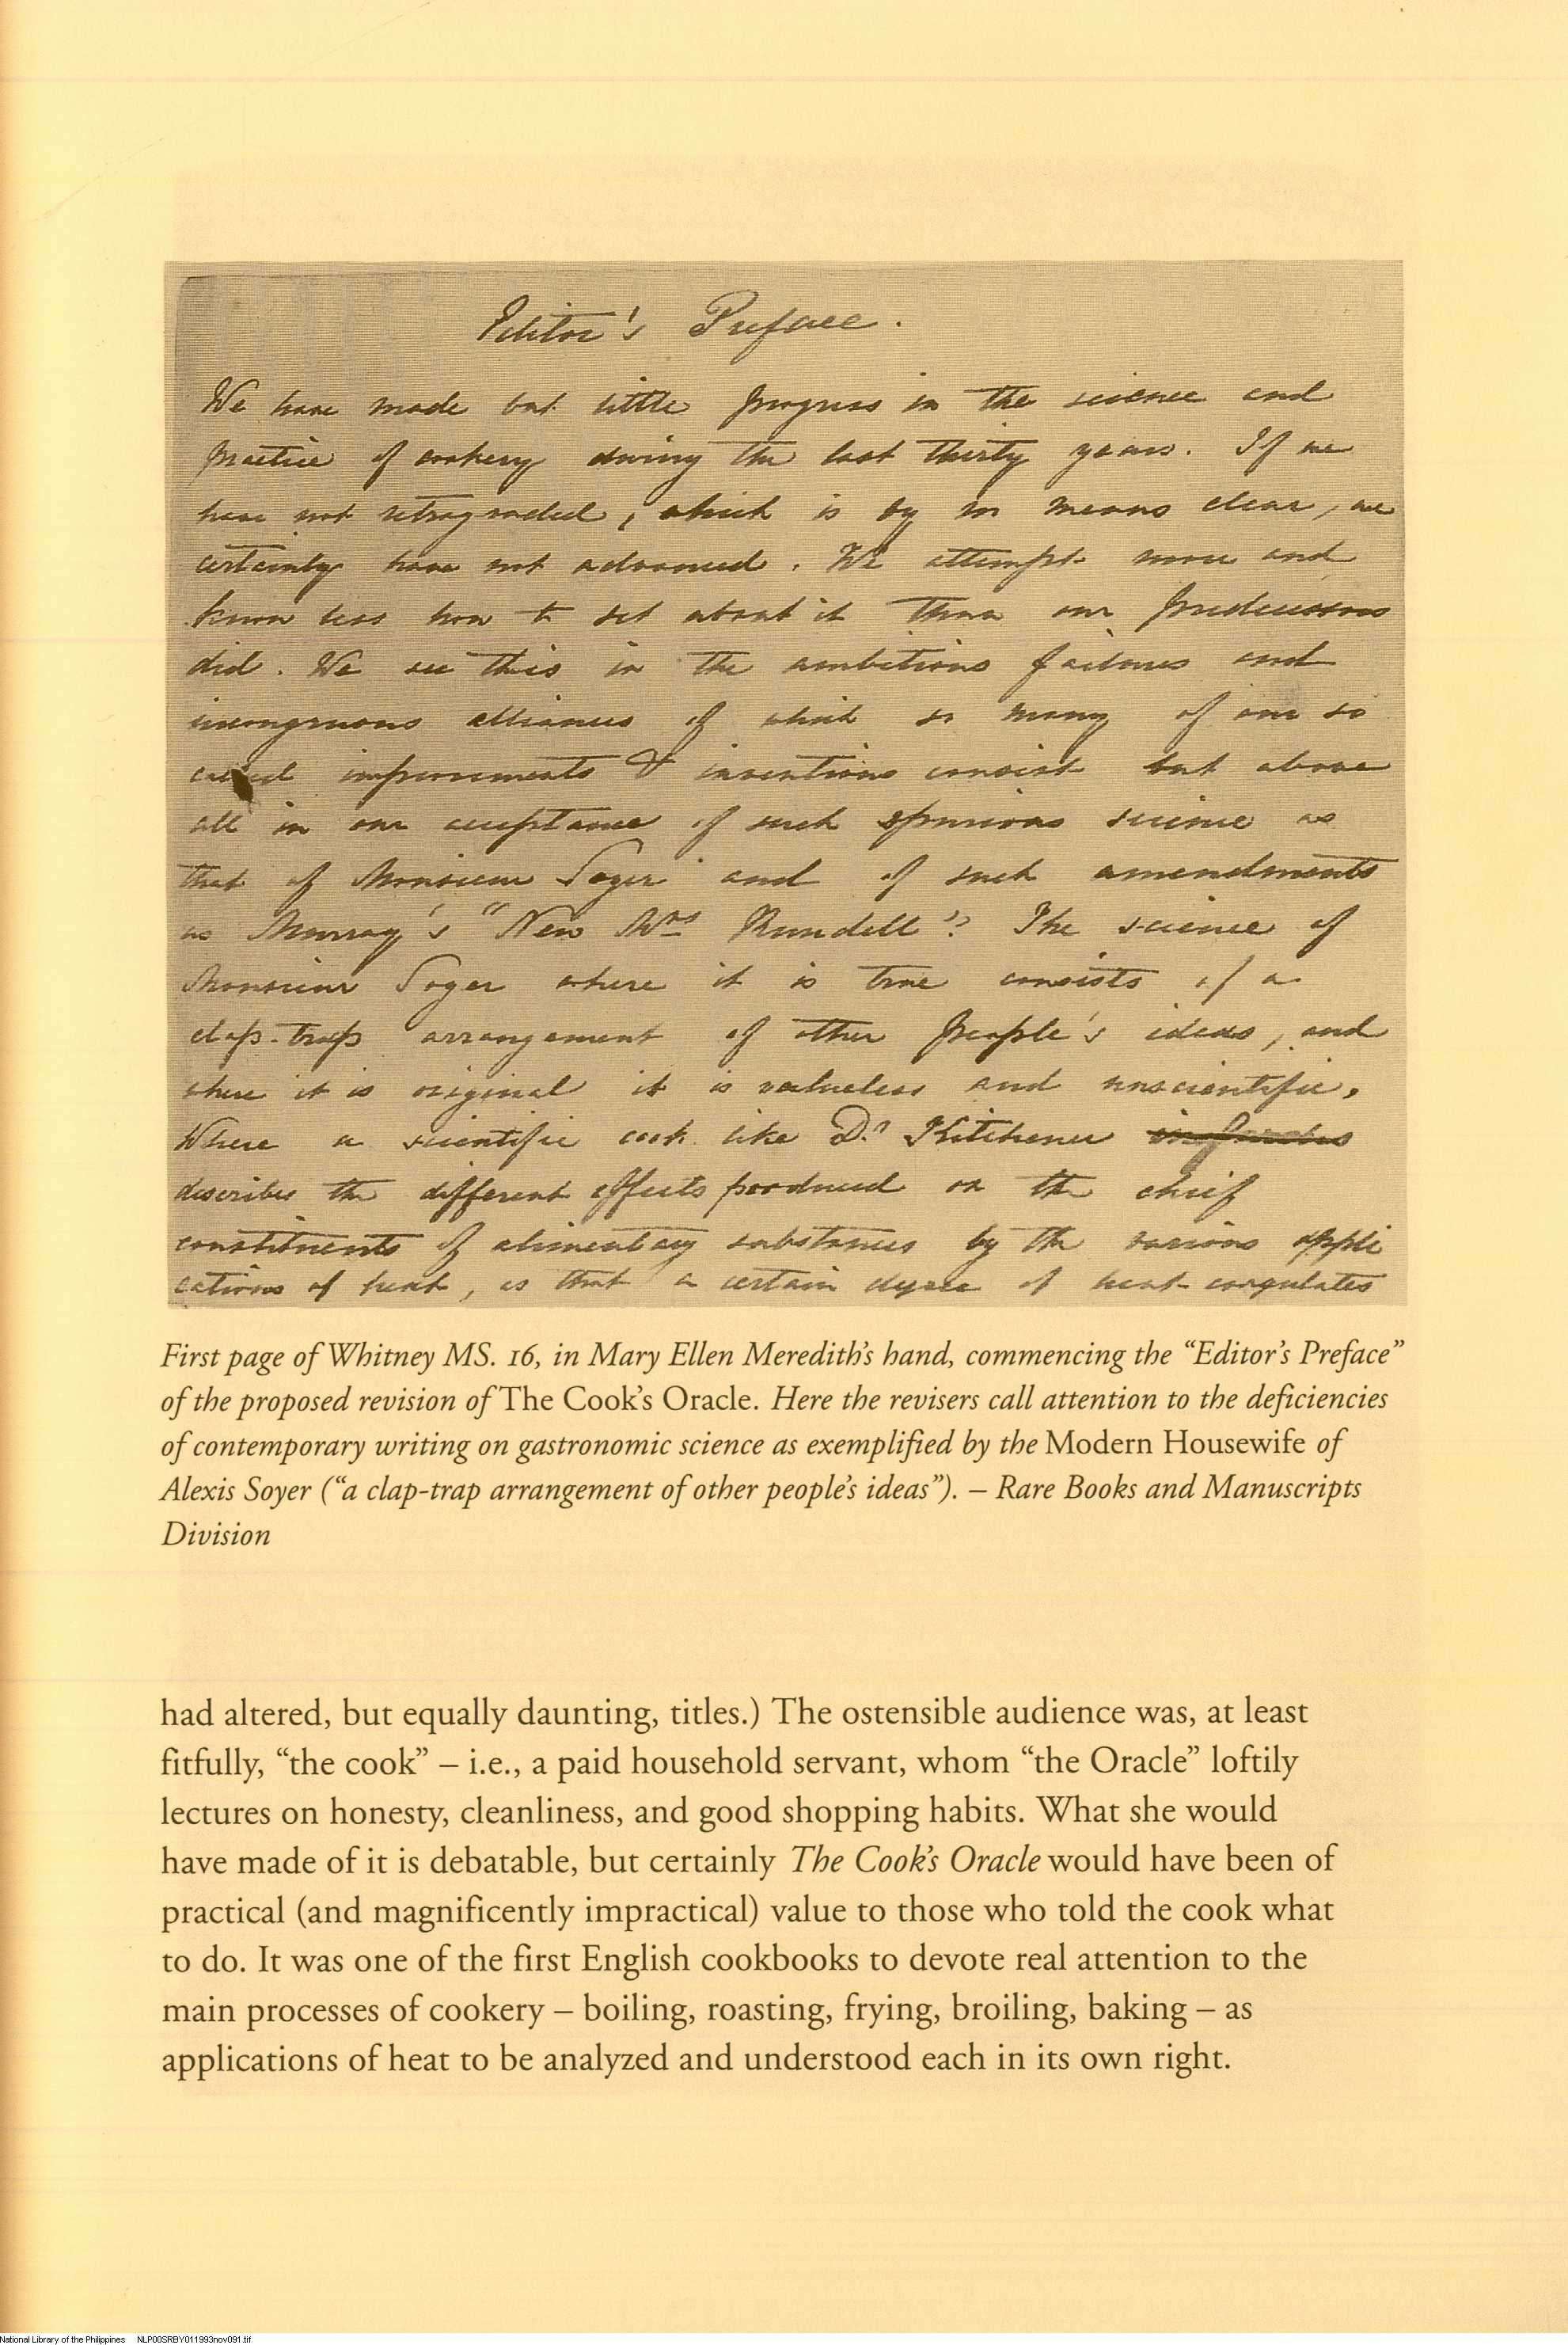 Editor's Preface.
We have made but little progress in the science and
practice of cookery during the last thirty years. If we
have not retrograded, which is by no means clear, we
certainly have not advanced. We attempt more and
know less how to set about it than our predecessors
did. We see this in the ambitious failures and
incongruous alliances of which so many of our so
called improvements & inventions consist but above
all in our acceptance of such spurious science as
that of Monsieur Soyer and of such amendments
as Murray's "New Mrs Rundell". The science of
Monsieur Soyer where it is true consists of a
clap-trap arrangement of other people's ideas, and
where it is original it is valueless and unscientific.
Where a scientific cook like Dr Kitchener
describes the different effects produced on the chief
constituents of alimentary substances by the various appli
cations of heat, as that a certain degree of heat coagulates
First page of Whitney MS. 16, in Mary Ellen Meredith's hand, commencing the “Editor's Preface”
of the proposed revision of The Cook's Oracle. Here the revisers call attention to the deficiencies
of contemporary writing on gastronomic science as exemplified by the Modern Housewife of
Alexis Soyer (“a clap-trap arrangement of other people's ideas”). – Rare Books and Manuscripts
Division
had altered, but equally daunting, titles.) The ostensible audience was, at least
fitfully, “the cook” – i.e., a paid household servant, whom “the Oracle” loftily
lectures on honesty, cleanliness, and good shopping habits. What she would
have made of it is debatable, but certainly The Cook's Oracle would have been of
practical (and magnificently impractical) value to those who told the cook what
to do. It was one of the first English cookbooks to devote real attention to the
main processes of cookery – boiling, roasting, frying, broiling, baking – as
applications of heat to be analyzed and understood each in its own right.
National Library of the Philippines NLP00SRBY011993nov091.tif